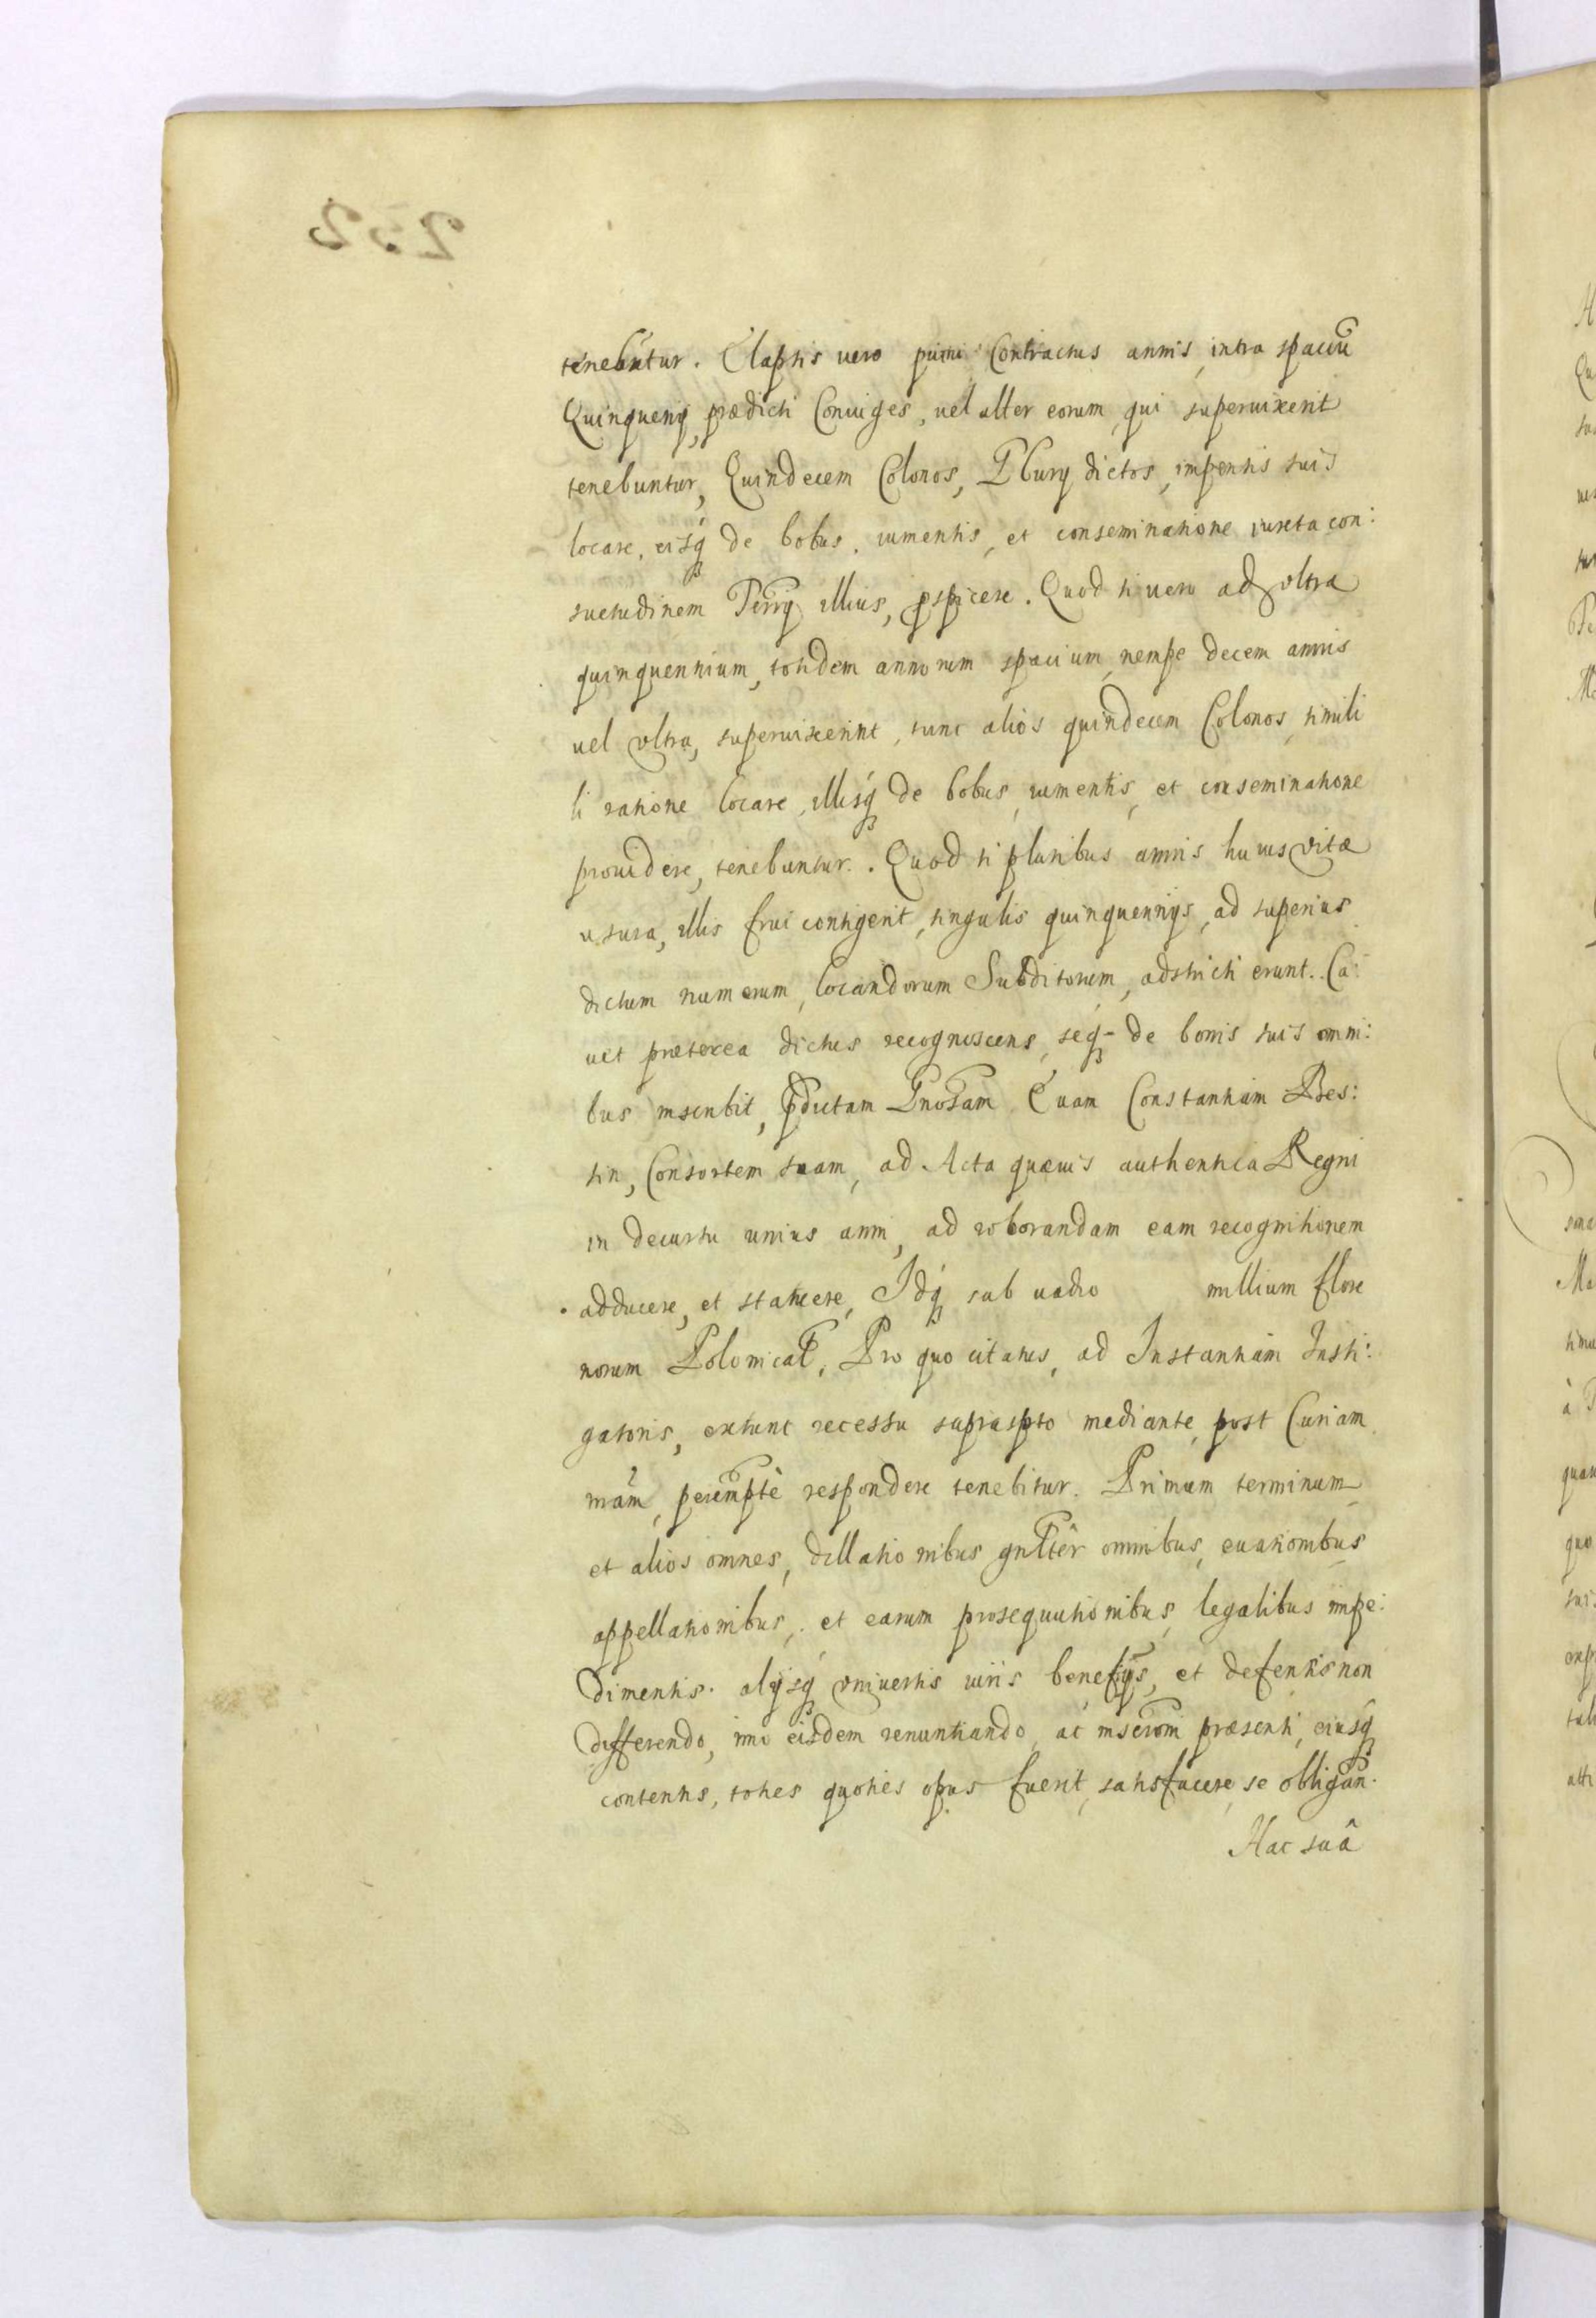 tenebūtur. Elapsis uero primi Contractus annis, intra spaciū
Quinquenij, prædicti Coniuges, uel alter eorum, qui superuixerit
tenebuntur, Quindecem Colonos, dictos, impensis suis
locare, eisq́ de bobus, iumentis, et conseminatione iuxta con:
suetudinem illius, pspicere. Quod si uero ad vltra
quinquennium, totidem annorum spacium, nempe decem annis
uel vltra, superuixerint, tunc alios quindecem Colonos, simili
li ratione locare, illisq́ de bobus, iumentis, et conseminatione
prouidere, tenebuntur. Quod si pluribus annis huius vitæ
usura, illis frui contigerit, singulis quinquennijs, ad superius
dictum numerum, locandorum Subditorum, adstricti erunt. Ca:
uet præterea dictus recognoscens, seq- de bonis suis omni:
bus inscribit, pdictam Gnosam Euam Constantiam Bes:
sin, Consortem suam, ad Acta quæuis authentica Regni
in decursu unius anni, ad roborandam eam recognitionem
adducere, et statuere, Idq́ sub uadio millium flore
norum Polonical, Pro quo citatus, ad Instantiam Insti:
gatoris, extunc recessu supraspto mediante, post Curiam
mâm, peremptè respondere tenebitur. Primum terminum
et alios omnes, dillationibus gnlter omnibus, euasionibus
appellationibus, et earum prosequutionibus, legalibus impe:
dimentis. alijsq́ vniuersis iuris benefijs, et defensis non
differendo, imo eisdem renuntiando, ac inscroni præsenti, eiusq́
contentis, toties quoties opus fuerit, satisfacere, se obligan.
Hac suâ